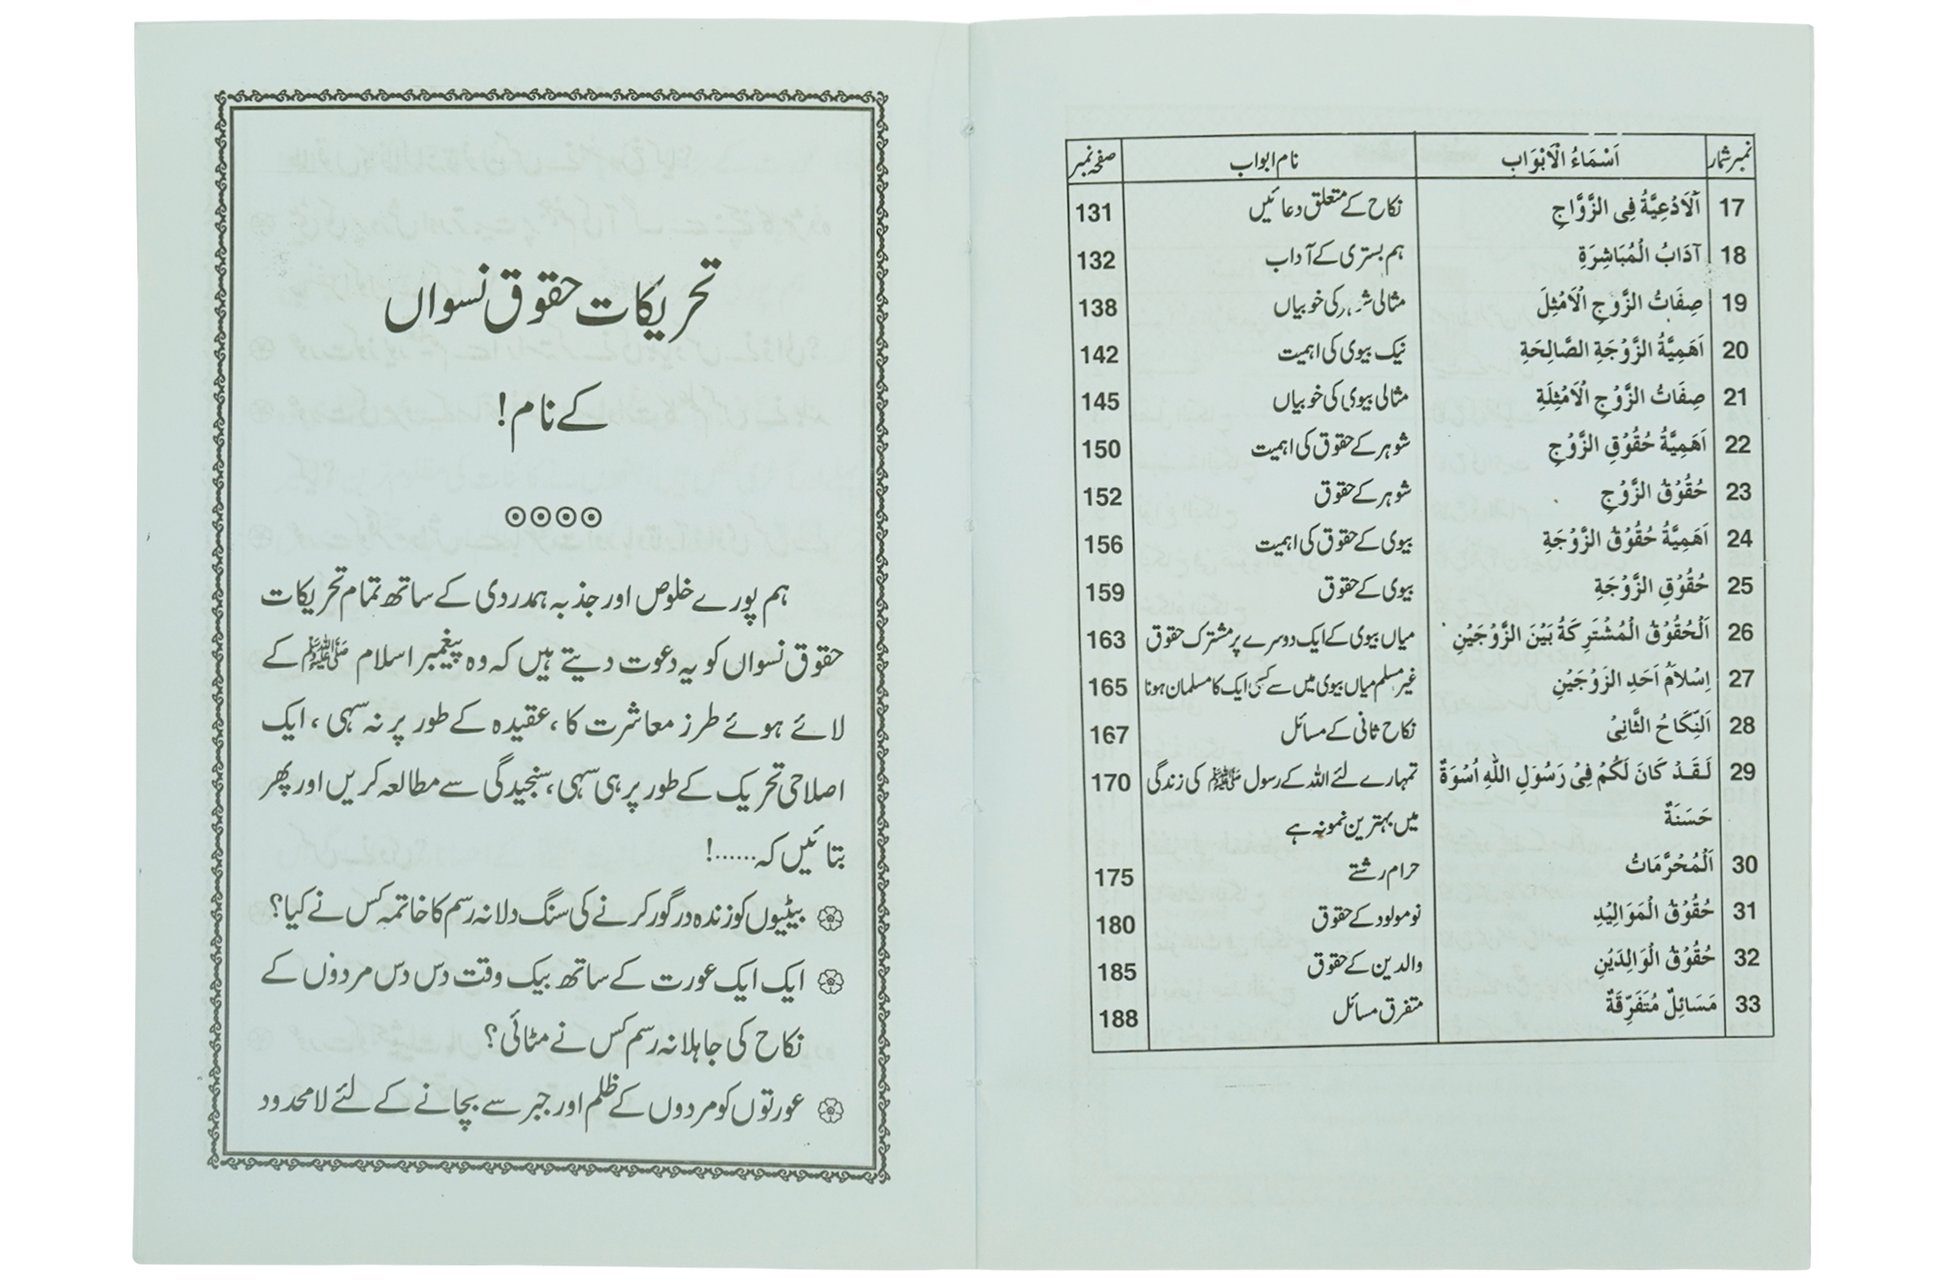 نمبر شمار اَسْمَاءُ الْاَبْوَابِ نام ابواب صفحہ نمبر
17 اَلْاَدْعِيَّةُ فِى الزَّوَّاجِ نکاح کے متعلق دعائیں 131
18 آدَابُ الْمُبَاشِرَةِ ہم بستری کے آداب 132
19 صِفَاتُ الزَّوْجِ الْاَمْثِلَ مثالی شوہر کی خوبیاں 138
20 اَهَمِيَّةُ الزَّوْجَةِ الصَّالِحَةِ نیک بیوی کی اہمیت 142
21 صِفَاتُ الزَّوْجِ الْاَمْثِلَةِ مثالی بیوی کی خوبیاں 145
22 اَهَمِيَّةُ حُقُوْقِ الزَّوْجِ شوہر کے حقوق کی اہمیت 150
23 حُقُوْقُ الزَّوْجِ شوہر کے حقوق 152
24 اَهَمِيَّةُ حُقُوْقُ الزَّوْجَةِ بیوی کے حقوق کی اہمیت 156
25 حُقُوْقِ الزَّوْجَةِ بیوی کے حقوق 159
26 اَلْحُقُوْقُ الْمُشْتَرِكَةُ بَيْنَ الزَّوْجَيْنِ میاں بیوی کے ایک دوسرے پر مشترک حقوق 163
27 اِسْلَامُ اَحَدِ الزَوْجَيْنِ غیر مسلم میاں بیوی میں سے کسی ایک کا مسلمان ہونا 165
28 اَلنِّكَاحُ الثَّانِىْ نکاح ثانی کے مسائل 167
29 لَقَدْ كَانَ لَكُمْ فِىْ رَسُوْلِ اللّٰهِ اُسْوَةٌ تمہارے لئے اللہ کے رسول ﷺ کی زندگی 170
حَسَنَةٌ میں بہترین نمونہ ہے
30 اَلْمُحْرَّمَاتُ حرام رشتے 175
31 حُقُوْقُ الْمَوَالِيْدِ نومولود کے حقوق 180
32 حُقُوْقُ الْوَالِدَيْنِ والدین کے حقوق 185
33 مَسَائِلٌ مُتَفَرِّقَةٌ متفرق مسائل 188
تحریکات حقوق نسواں
کے نام!
ہم پورے خلوص اور جذبہ ہمدردی کے ساتھ تمام تحریکات
حقوق نسواں کو یہ دعوت دیتے ہیں کہ وہ پیغمبر اسلام ﷺ کے
لائے ہوئے طرز معاشرت کا، عقیدہ کے طور پر نہ سہی، ایک
اصلاحی تحریک کے طور پر ہی سہی، سنجیدگی سے مطالعہ کریں اور پھر
بتائیں کہ......!
بیٹیوں کو زندہ درگور کرنے کی سنگ دلانہ رسم کا خاتمہ کس نے کیا؟
ایک ایک عورت کے ساتھ بیک وقت دس دس مردوں کے
نکاح کی جاہلانہ رسم کس نے مٹائی؟
عورتوں کو مردوں کے ظلم اور جبر سے بچانے کے لئے لامحدود